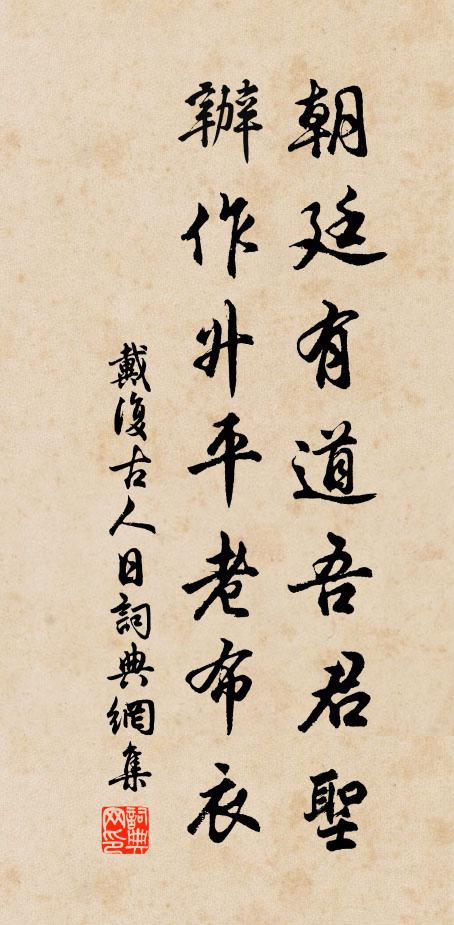 朝廷有道吾君聖
辦作升平老布衣
戴復古人日詞典網集
詞典网印